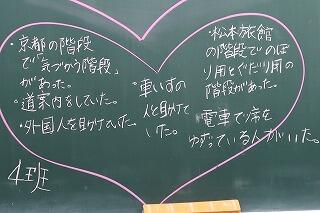 ・京都の階段
で「気づかう階段」
があった。
・道案内をしていた。
・外国人を助けていた。
・車いすの
人を助けて
いた。
・松本旅館
の階段でのぼ
り用とくだり用の
階段があった。
電車で席を
ゆずっている人がいた。
4班